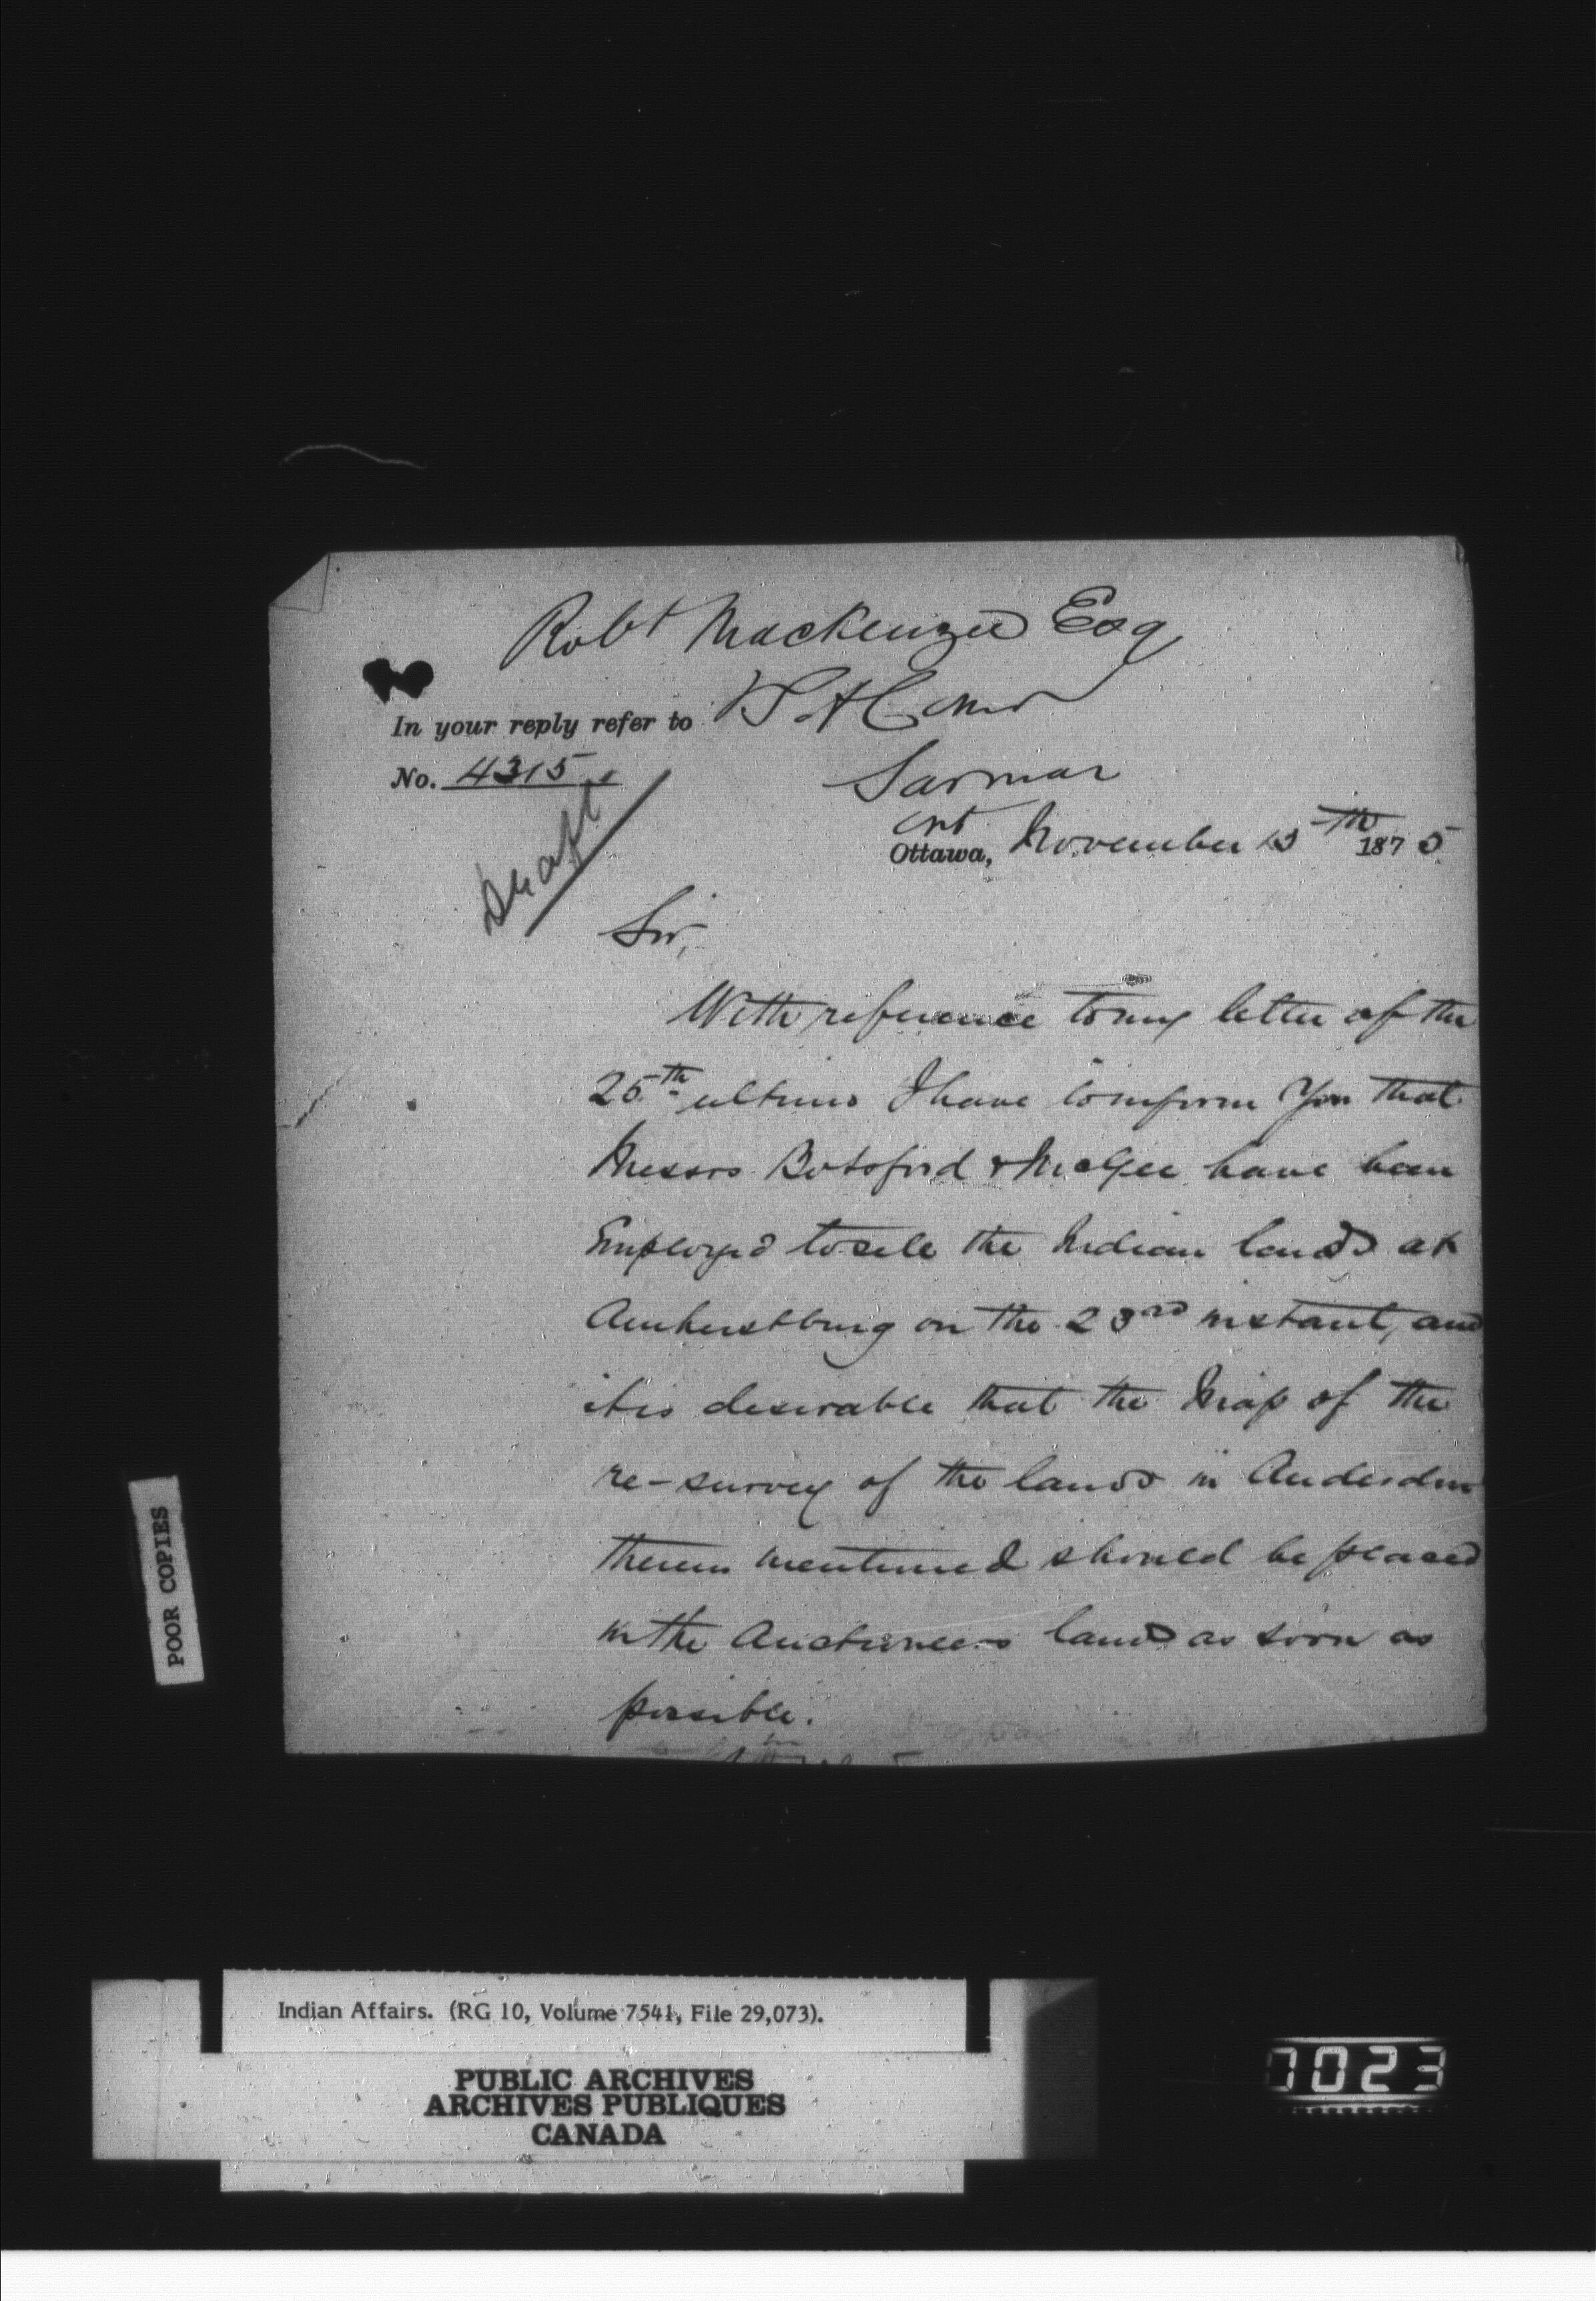 Robt Mackenzie Esq
In your reply refer to
No. 4315
Sarnia
Ont
Draft
Ottawa, November 15th 1875
Sir,
With reference to my letter of the
25th ultimo I have to inform you that
Messrs Botsford & McGee have been
Employed to sell the Indian lands at
Amherstburg on the 23rd instant, and
it is desirable that the Map of the
re-survey of the lands in Anderdon
therein mentioned should be placed
in the Auctioneers hand as soon as
possible.
POOR COPIES
Indian Affairs. (RG 10, Volume 7541, File 29,073).
PUBLIC ARCHIVES
ARCHIVES PUBLIQUES
CANADA
0023